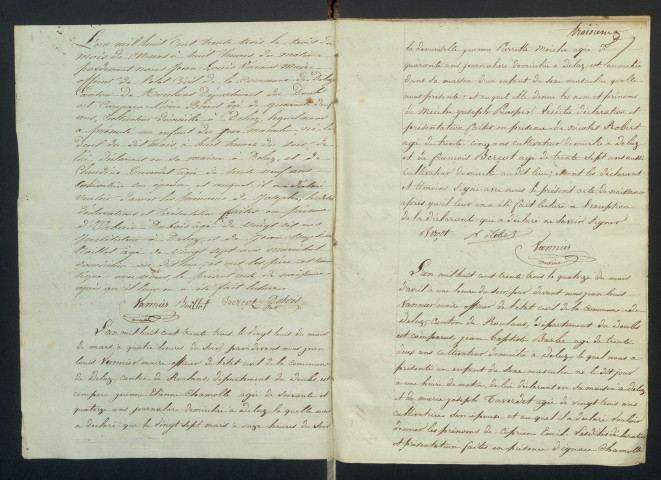 L'an mil huit cent trente trois le trois du
mois de Mars à huit heures du matin
pardevant nous Jean Louis Vannier Maire
officier de l'état Civil de la Commune de Deluz
Canton de Roulans département du Doubs
est Comparu
Cultivateur domicilié à Deluz lequel nous
a présenté un enfant du sexe masculin né le
Deux du dit mois, à huit heures du soir, de
lui déclarant en sa maison à Deluz, et de
Claudine Taverdet agée de trente neuf ans
son épouse, et auquel il a déclaré
vouloir donner les prénoms de Joseph, les dites
déclarations et Présentation faites en présence
agé de vingt sept ans
Instituteur à Deluz, et de Jean
Boillot agé de vingt sept ans
domicilié
signé avec nous le présent acte de naissance
après qu'il leur en a été fait lecture
Vannier Boillot Bercot Dubois
L'an mil huit cent trente trois, le vingt huit du mois
de mars à quatre heures du soir pardevant nous jean
louis Vannier maire officier de l'état civil de la commune
de Deluz, canton de Roulans, département du Doubs, est
comparu
quatorze ans journalière domiciliée à Deluz laquelle nous
a déclaré que le vingt sept mars à onze heures du soir
troisieme
la demoiselle jeanne Pierrette Maiche agée de
quarante ans journalière domiciliée à Deluz, est accouchée
dans sa maison d'un enfant de sexe masculin qu'elle
nous présente; et auquel elle donne les nom et prénoms
de Maiche joseph Prosper. Lesdites déclaration et
présentation faites en présence de nicolas Robert
agé de trente cinq ans cultivateur domicilié à Deluz
et de françois Bercot agé de trente sept ans aussi
cultivateur domicilié au dit lieu; et ont les déclarant
et témoins signé avec nous le présent acte de naissance
après que lecture leur en a été faite à l'exception
de la déclarante qui a déclaré ne savoir signer
Bercot N Robert
Vannier
L'an mil huit cent trente trois le quatorze du mois
d'avril à une heure du soir par devant nous jean louis
Vannier maire officier de l'état civil de la commune de
Deluz, Canton de Roulans, Département du doubs
est comparu, jean Baptiste Barbe agé de trente
deux ans cultivateur domicilié à Deluz, lequel nous a
présenté un enfant de sexe masculin né le dit jour
à une heure du matin, de lui déclarant en sa maison à Deluz
et de marie joseph Taverdet agée de vingt trois ans
cultivatrice son épouse et auquel il a déclaré vouloir
donner les prénoms de Cyprien Emile. Lesdites déclaration
et présentation faites en présence d'ignace Chamolle